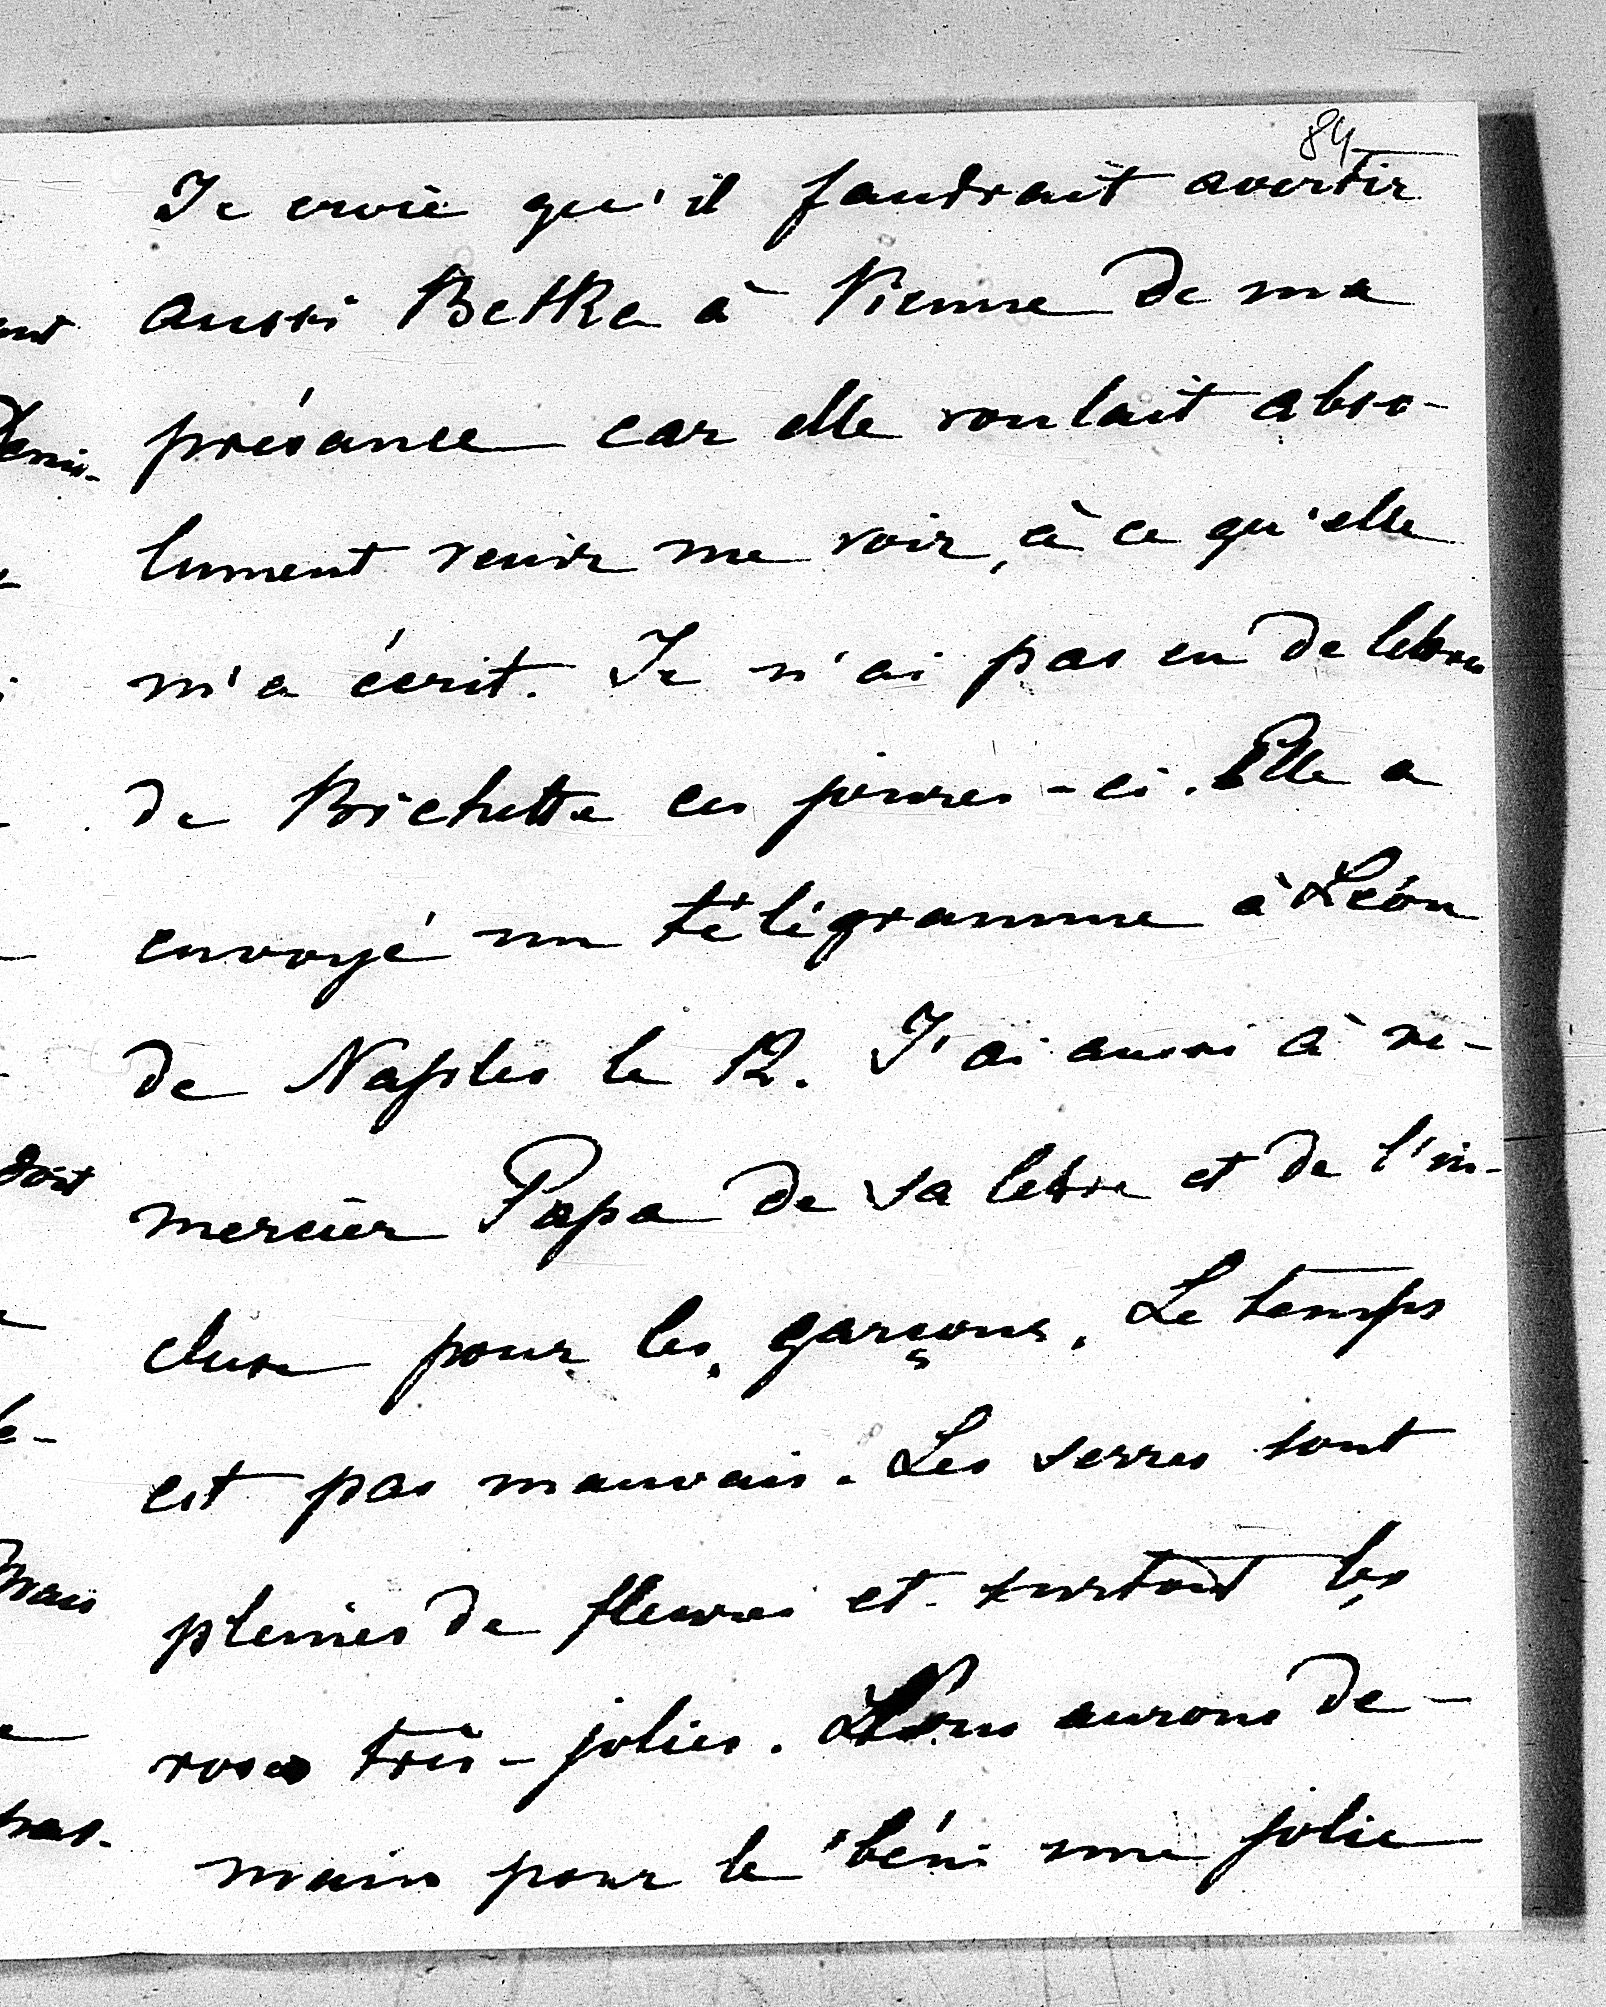 84
Je croie qu'il faudrait avertir
aussi Betka à Vienne de ma
présance car elle voulait abso-
lument venir me voir, à ce qu'elle
m'a écrit. Je n'ai pas eu de lettres
de Bichette ces joures-ci. Elle a
envoyé un télégramme à Léon
de Naples le 12. J'ai aussi à re-
mercier Papa de sa lettre et de l'in-
cluse pour les garçons. Le temps
est pas mauvais. Les serres sont
pleines de fleures et surtout les
roses très-jolies. Nous aurons de-
main pour le béni une jolie